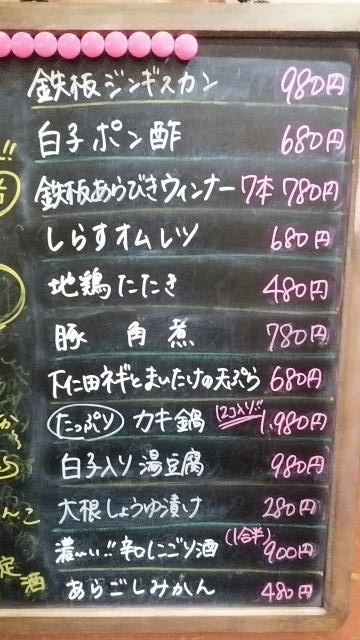 鉄板ジンギスカン 980円
白子ポン酢 680円
鉄板あらびきウィンナー7本 780円
しらすオムレツ 680円
地鶏たたき 480円
豚角煮 780円
下仁田ネギとまいたけの天ぷら 680円
たっぷり カキ鍋 12コ入り!! 1,980円
白子入り湯豆腐 980円
大根しょうゆ漬け 280円
濃〜い!!辛口にごり酒 (1合半) 900円
あらごしみかん 480円